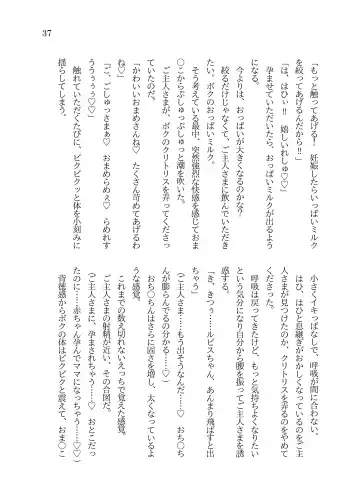 37
「もっと触ってあげる！　妊娠したらいっぱいミルク
を絞ってあげるんだから‼」
「は、はひぃ‼　嬉しいれしゅ♡♡」
孕ませていただいたら、おっぱいミルクが出るよう
になる。
今よりは、おっぱいが大きくなるのかな？
絞るだけじゃなくて、ご主人さまに飲んでいただき
たい。ボクのおっぱいミルク。
そう考えている最中、突然強烈な快感を感じておま
〇こからぷしゅっぷしゅっと潮を吹いた。
ご主人さまが、ボクのクリトリスを弄ってくださっ
ていたのだ。
「かわいいおまめさんね♡　たくさん苛めてあげるわ
ね♡」
「ご、ごしゅっさまぁ♡　おまめらめぇ♡　らめれす
ううぅぅう♡♡」
触れていただくたびに、ビクビクッと体を小刻みに
揺らしてしまう。
小さくイキっぱなしで、呼吸が間に合わない。
はひ、はひと息継ぎがおかしくなっているのをご主
人さまが見つけたのか、クリトリスを弄るのをやめて
くださった。
呼吸は戻ってきたけど、もっと気持ちよくなりたい
という気分になり自分から腰を振ってご主人さまを誘
惑する。
「き、きつぅ…ルビスちゃん、あんまり飛ばすと出
ちゃう」
（ご主人さま……もう出そうなんだ……♡　おち〇ち
んが膨らんでるの分かる……♡）
おち〇ちんはさらに固さを増し、太くなっているよ
うな感覚。
これまでの数え切れないえっちで覚えた感覚。
ご主人さまの射精が近い、その合図だ。
（ご主人さまに、孕まされちゃう……♡　おとこだっ
たのに……赤ちゃん孕んでママになっちゃう……♡♡）
背徳感からボクの体はビクビクと震えて、おま〇こ